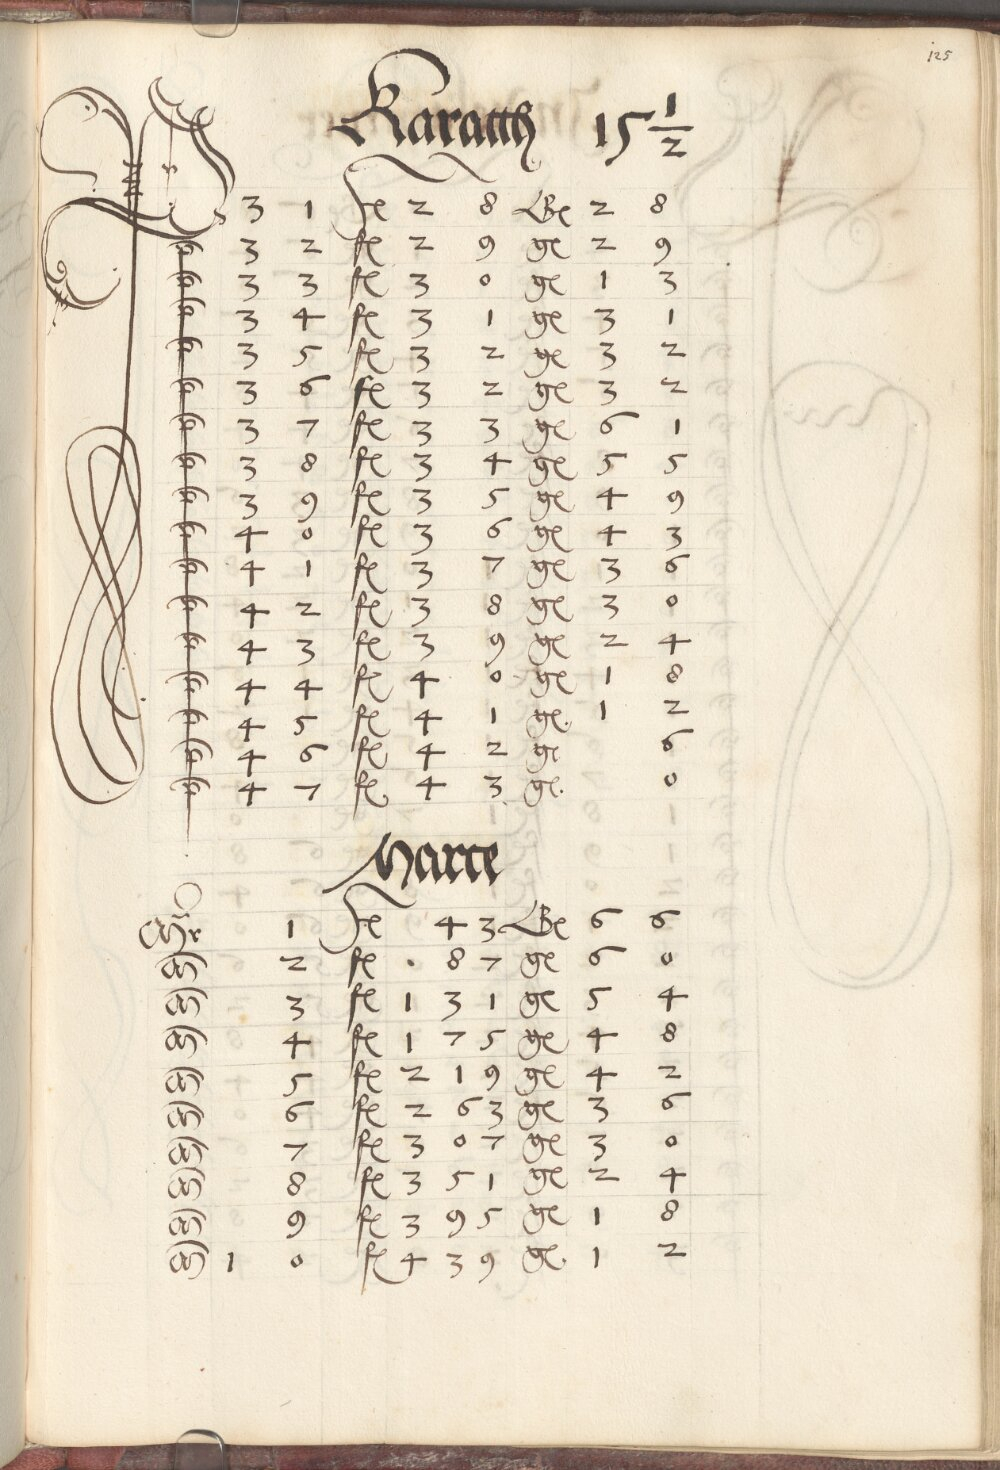 125
Karatth 15 1/2
3 1 fl 2 8 ge 2 8
3 2 fl 2 9 ge 2 9
3 3 fl 3 0 ge 1 3
3 4 fl 3 1 ge 3 1
3 5 fl 3 2 ge 3 2
3 6 fl 3 2 ge 3 2
3 7 fl 3 3 ge 6 1
3 8 fl 3 4 ge 5 5
3 9 fl 3 5 ge 4 9
4 0 fl 3 6 ge 4 3
4 1 fl 3 7 ge 3 6
4 2 fl 3 8 ge 3 0
4 3 fl 3 9 ge 2 4
4 4 fl 4 0 ge 1 8
4 5 fl 4 1 ge 1 2
4 6 fl 4 2 ge 6
4 7 fl 4 3 ge 0
Marce
1 fl 4 3 ge 6 6
2 fl . 8 7 ge 6 0
3 fl 1 3 1 ge 5 4
4 fl 1 7 5 ge 4 8
5 fl 2 1 9 ge 4 2
6 fl 2 6 3 ge 3 6
7 fl 3 0 7 ge 3 0
8 fl 3 5 1 ge 2 4
9 fl 3 9 5 ge 1 8
1 0 fl 4 3 9 ge 1 2